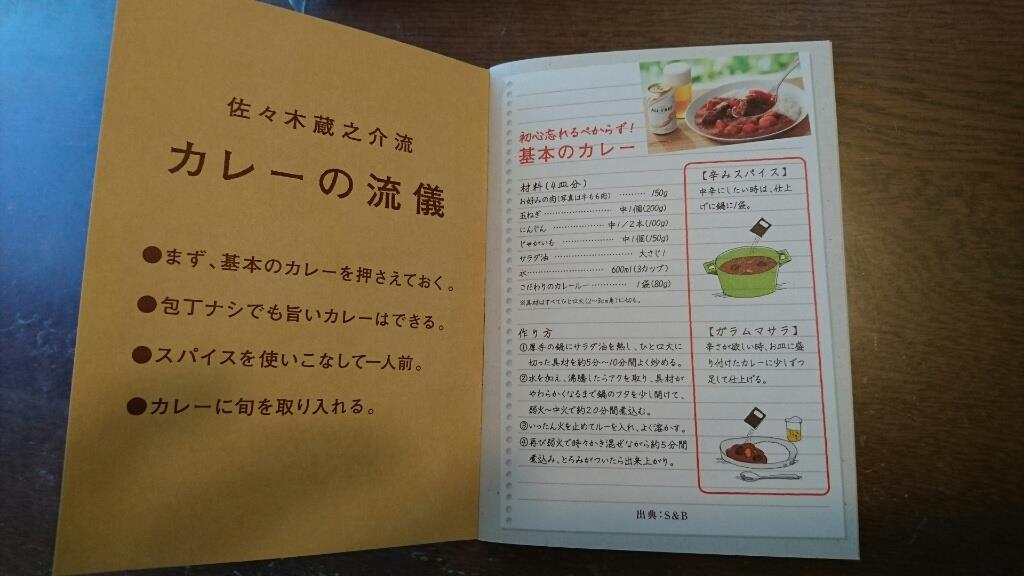 佐々木蔵之介流
カレーの流儀
●まず、基本のカレーを押さえておく。
●包丁ナシでも旨いカレーはできる。
●スパイスを使いこなして一人前。
●カレーに旬を取り入れる。
初心忘れるべからず!
基本のカレー
材料(4皿分)
お好みの肉(写真は牛もも肉) ……… 150g
玉ねぎ ……………………… 中1個(200g)
にんじん ……………… 中1/2本(100g)
じゃがいも …………… 中1個(150g)
サラダ油 ……………………… 大さじ1
水 ……………………… 600ml(3カップ)
こだわりのカレールー ………… 1袋(80g)
※具材はすべてひと口大(2〜3cm角)に切る。
作り方
①厚手の鍋にサラダ油を熱し、ひと口大に
切った具材を約5分〜10分間よく炒める。
②水を加え、沸騰したらアクを取り、具材が
やわらかくなるまで鍋のフタを少し開けて、
弱火〜中火で約20分間煮込む。
③いったん火を止めてルーを入れ、よく溶かす。
④再び弱火で時々かき混ぜながら約5分間
煮込み、とろみがついたら出来上がり。
【辛みスパイス】
中辛にしたい時は、仕上
げに鍋に1袋。
【ガラムマサラ】
辛さが欲しい時、お皿に盛
り付けたカレーに少しずつ
足して仕上げる。
出典:S&B